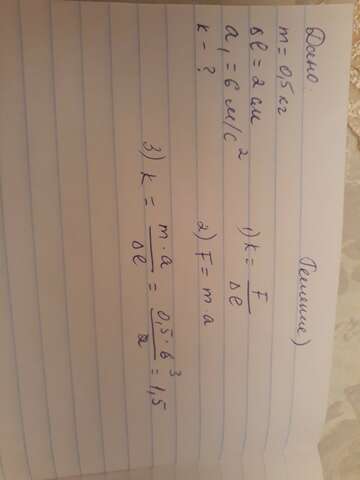 Дано:
m = 0,5 кг
Δl = 2 см
a₁ = 6 м/с²
k - ?
Решение)
1) k = F/Δl
2) F = m a
3) k = m · a/Δl = 0,5 · 6³/2 = 1,5